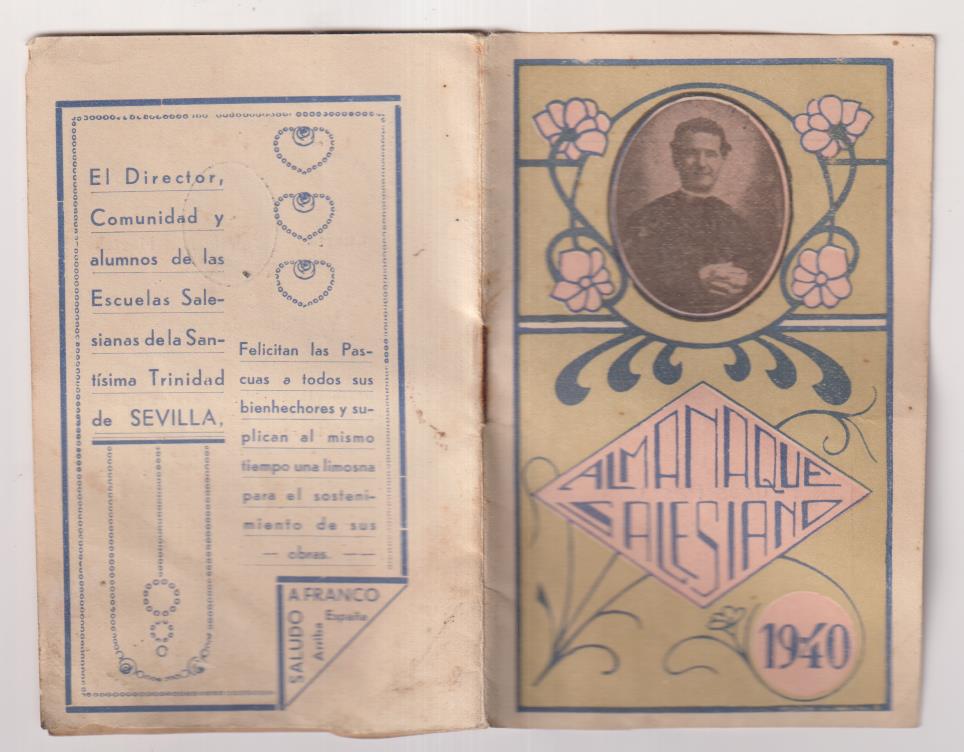 El Director,
Comunidad y
alumnos de las
Escuelas Sale-
sianas de la San-
tísima Trinidad
de SEVILLA,
Felicitan las Pas-
cuas a todos sus
bienhechores y su-
plican al mismo
tiempo una limosna
para el sosteni-
miento de sus
— obras. —
SALUDO
A FRANCO
Arriba
España
ALMANAQUE
SALESIANO
1940